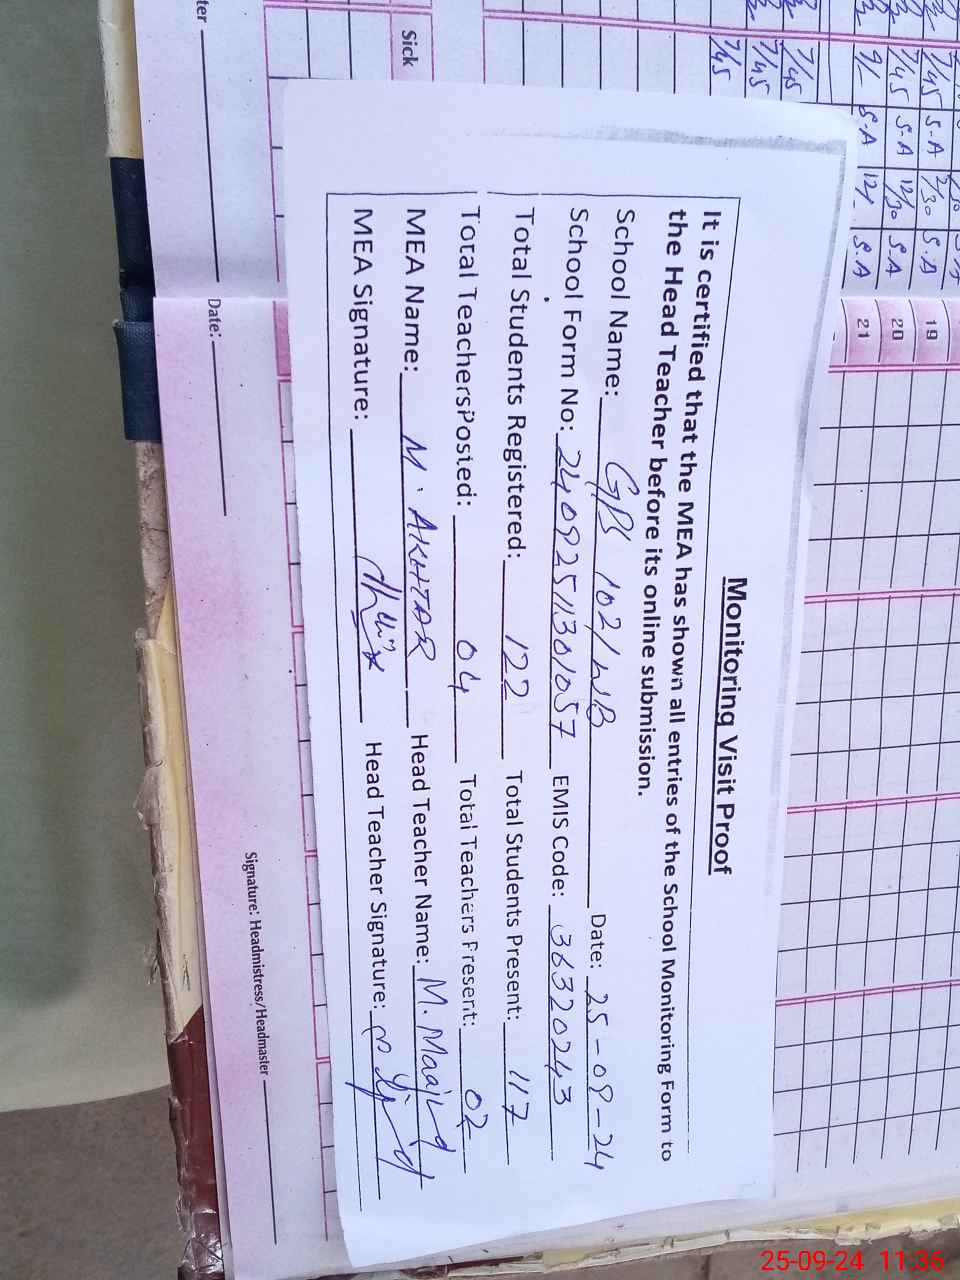 Monitoring Visit Proof
It is certified that the MEA has shown all entries of the School Monitoring Form to
the Head Teacher before its online submission.
School Name: GPS 102/WB Date: 25-09-24
School Form No: 24092511301057 EMIS Code: 36320243
Total Students Registered: 122 Total Students Present: 117
Total Teachers Posted: 04 Total Teachers Present: 02
MEA Name: M. AKHTAR Head Teacher Name: M. Maajid
MEA Signature: Head Teacher Signature:
Sick
7/45
7/45
7/45
9/- S.A 12/ S.A
7/45 S.A 12/30 S.A
7/45 S.A 2/30 S.A
19
20
21
ter
Date:
Signature: Headmistress/Headmaster
25-09-24 11:36